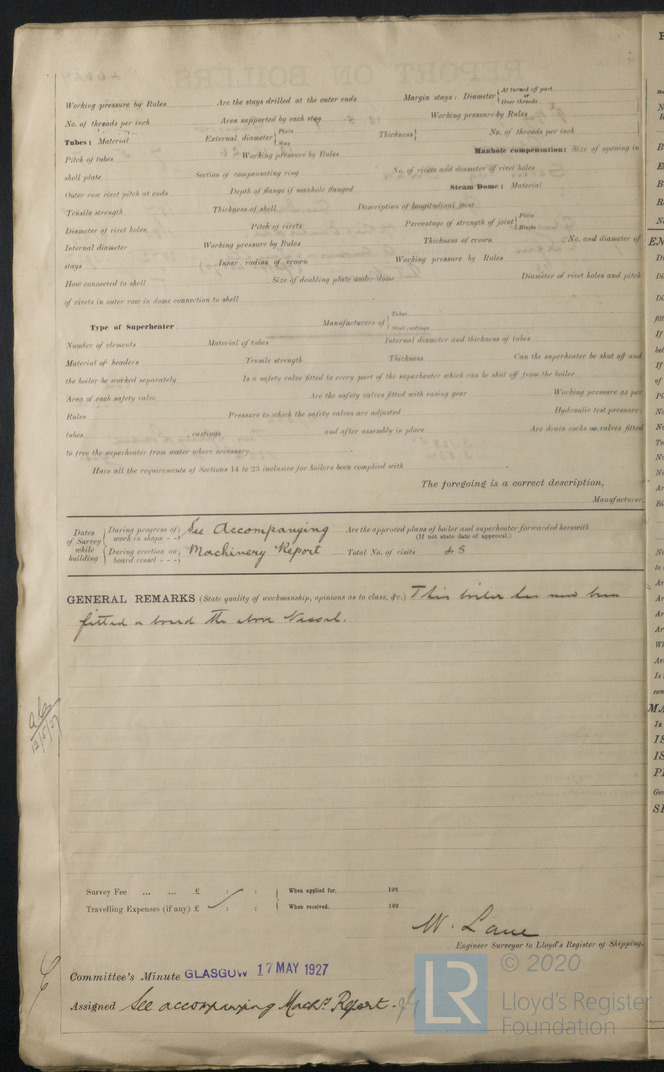 REPORT ON BOILERS
Working pressure by Rules Are the stays drilled at the outer ends Margin stays: Diameter { At turned off part or Over threads
No. of threads per inch Area supported by each stay Working pressure by Rules
Tubes: Material External diameter { Plain Stay Thickness { No. of threads per inch
Pitch of tubes Working pressure by Rules Manhole compensation: Size of opening in
shell plate Section of compensating ring No. of rivets and diameter of rivet holes
Outer row rivet pitch at ends Depth of flange if manhole flanged Steam Dome: Material
Tensile strength Thickness of shell Description of longitudinal joint
Diameter of rivet holes Pitch of rivets Percentage of strength of joint { Plate Rivets
Internal diameter Working pressure by Rules Thickness of crown No. and diameter of
stays Inner radius of crown Working pressure by Rules
How connected to shell Size of doubling plate under dome Diameter of rivet holes and pitch
of rivets in outer row in dome connection to shell
Type of Superheater Manufacturers of { Tubes Steel castings
Number of elements Material of tubes Internal diameter and thickness of tubes
Material of headers Tensile strength Thickness Can the superheater be shut off and
the boiler be worked separately Is a safety valve fitted to every part of the superheater which can be shut off from the boiler
Area of each safety valve Are the safety valves fitted with easing gear Working pressure as per
Rules Pressure to which the safety valves are adjusted Hydraulic test pressure:
tubes , castings and after assembly in place Are drain cocks or valves fitted
to free the superheater from water where necessary
Have all the requirements of Sections 14 to 23 inclusive for boilers been complied with
The foregoing is a correct description,
Manufacturer.
Dates of Survey while building { During progress of work in shops - - See Accompanying Are the approved plans of boiler and superheater forwarded herewith (If not state date of approval.)
During erection on board vessel - - - Machinery Report Total No. of visits 48
GENERAL REMARKS (State quality of workmanship, opinions as to class, &c.) This boiler has now been
fitted a board the above Vessel.
12/5/27
Survey Fee ... ... £ : : When applied for, 192
Travelling Expenses (if any) £ : : When received, 192
W. Lane
Engineer Surveyor to Lloyd's Register of Shipping.
Committee's Minute GLASGOW 17 MAY 1927
Assigned See accompanying Machy. Report.
LR © 2020
Lloyd's Register
Foundation